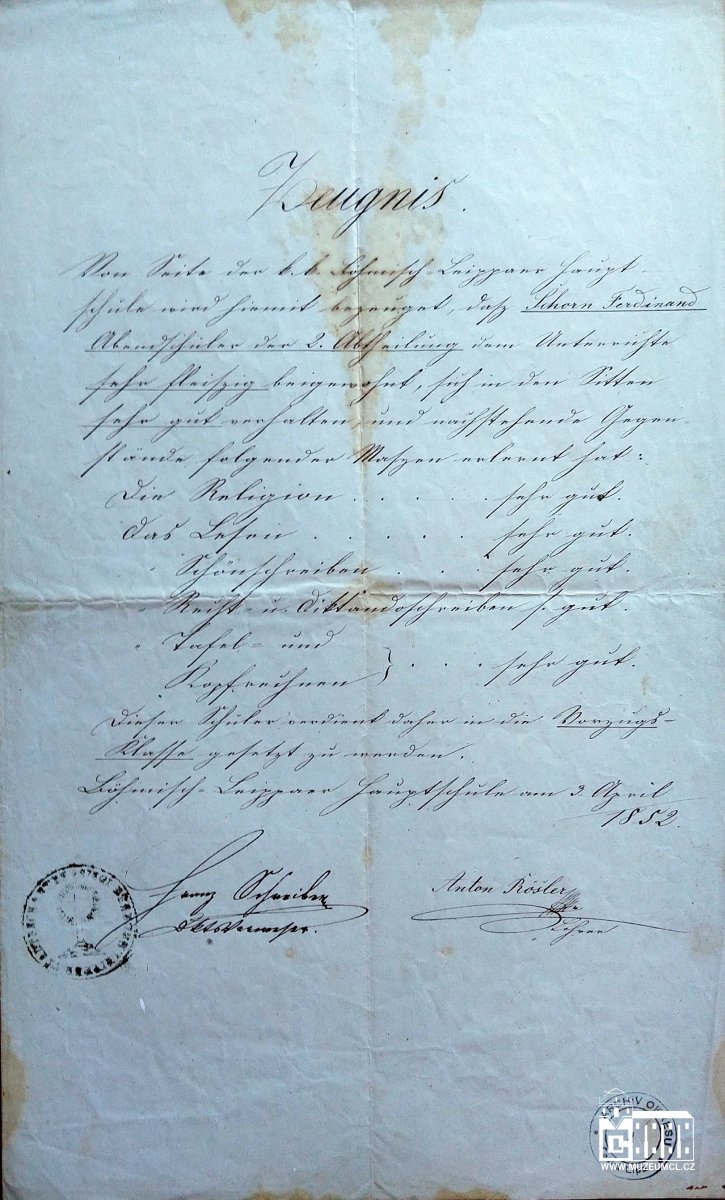 Zeugnis.
Von Seite der k. k. Böhmisch-Leippaer Haupt-
schule wird hiemit bezeuget, dasz Schorn Ferdinand
Abendschüler der 2. Abtheilung dem Unterrichte
sehr fleiszig beigewohnt, sich in den Sitten
sehr gut verhalten, und nachstehende Gegen-
stände folgender Maszen erlernt hat:
Die Religion . . . . . sehr gut.
Das Lesen . . . . . . sehr gut.
" Schönschreiben . . . sehr gut.
" Recht- u. Diktandoschreiben s. gut.
" Tafel- und
Kopfrechnen } . . . sehr gut.
Dieser Schüler verdient daher in die Vorzugs-
Klasse gesetzt zu werden.
Böhmisch-Leippaer Hauptschule am 3. April
1852.
Franz Schreiber
Anton Rösler
Lehrer
ARCHIV
WWW.MUZEUMCL.CZ